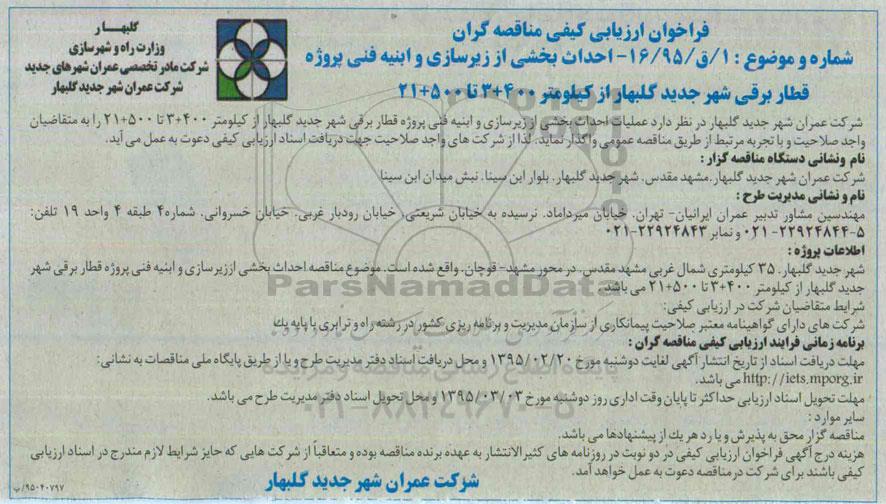 گلبهـــار
وزارت راه و شهرسازی
شرکت مادر تخصصی عمران شهرهای جدید
شرکت عمران شهر جدید گلبهار
فراخوان ارزیابی کیفی مناقصه گران
شماره و موضوع : ۱/ق/۱۶/۹۵- احداث بخشی از زیرسازی و ابنیه فنی پروژه
قطار برقی شهر جدید گلبهار از کیلومتر ۴۰۰+۳ تا ۵۰۰+۲۱
شرکت عمران شهر جدید گلبهار در نظر دارد عملیات احداث بخشی از زیرسازی و ابنیه فنی پروژه قطار برقی شهر جدید گلبهار از کیلومتر ۴۰۰+۳ تا ۵۰۰+۲۱ را به متقاضیان
واجد صلاحیت و با تجربه مرتبط از طریق مناقصه عمومی واگذار نماید. لذا از شرکت های واجد صلاحیت جهت دریافت اسناد ارزیابی کیفی دعوت به عمل می آید.
نام ونشانی دستگاه مناقصه گزار :
شرکت عمران شهر جدید گلبهار.مشهد مقدس. شهر جدید گلبهار. بلوار ابن سینا. نبش میدان ابن سینا
نام و نشانی مدیریت طرح :
مهندسین مشاور تدبیر عمران ایرانیان- تهران. خیابان میرداماد. نرسیده به خیابان شریعتی. خیابان رودبار غربی. خیابان خسروانی. شماره۴ طبقه ۴ واحد ۱۹ تلفن:
۵-۲۲۹۲۴۸۴۴-۰۲۱ و نمابر ۲۲۹۲۴۸۴۳-۰۲۱
اطلاعات پروژه :
شهر جدید گلبهار. ۳۵ کیلومتری شمال غربی مشهد مقدس. در محور مشهد- قوچان. واقع شده است. موضوع مناقصه احداث بخشی اززیرسازی و ابنیه فنی پروژه قطار برقی شهر
جدید گلبهار از کیلومتر ۴۰۰+۳ تا ۵۰۰+۲۱ می باشد.
شرایط متقاضیان شرکت در ارزیابی کیفی:
شرکت های دارای گواهینامه معتبر صلاحیت پیمانکاری از سازمان مدیریت و برنامه ریزی کشور در رشته راه و ترابری با پایه یك
برنامه زمانی فرایند ارزیابی کیفی مناقصه گران :
مهلت دریافت اسناد از تاریخ انتشار آگهی لغایت دوشنبه مورخ ۱۳۹۵/۰۲/۲۰ و محل دریافت اسناد دفتر مدیریت طرح و یا از طریق پایگاه ملی مناقصات به نشانی:
http://iets.mporg.ir می باشد.
مهلت تحویل اسناد ارزیابی حداکثر تا پایان وقت اداری روز دوشنبه مورخ ۱۳۹۵/۰۳/۰۳ و محل تحویل اسناد دفتر مدیریت طرح می باشد.
سایر موارد :
مناقصه گزار محق به پذیرش و یا رد هر یك از پیشنهادها می باشد.
هزینه درج آگهی فراخوان ارزیابی کیفی در دو نوبت در روزنامه های کثیرالانتشار به عهده برنده مناقصه بوده و متعاقباً از شرکت هایی که حایز شرایط لازم مندرج در اسناد ارزیابی
کیفی باشند برای شرکت در مناقصه دعوت به عمل خواهد آمد.
شرکت عمران شهر جدید گلبهار
۹۵۰۴۰۷۹۷/پ
ParsNamadData
پایگاه اطلاع رسانی مناقصه و مزایده
۰۲۱-۸۸۳۴۹۶۷۰-۵